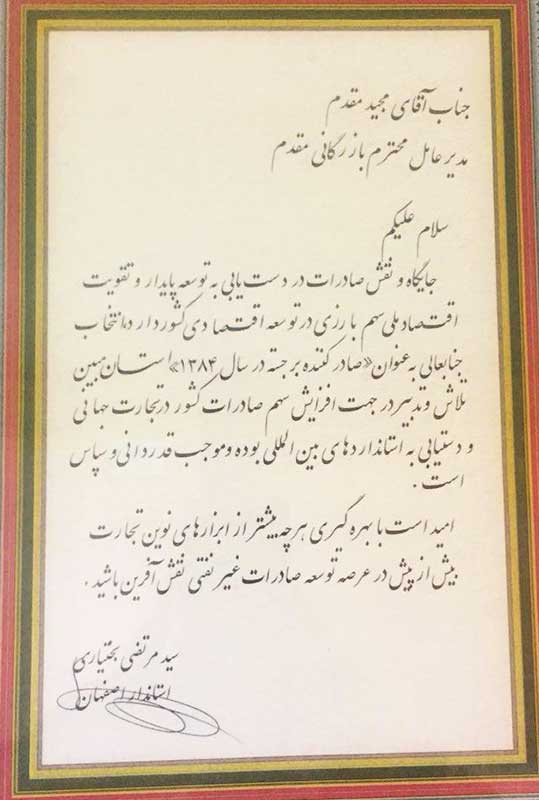 جناب آقای مجید مقدم
مدیر عامل محترم بازرگانی مقدم
سلام علیکم
جایگاه و نقش صادرات در دست یابی به توسعه پایدار و تقویت
اقتصاد ملی سهم بارزی در توسعه اقتصادی کشور دارد، انتخاب
جنابعالی به عنوان «صادر کننده برجسته در سال ۱۳۸۴» استان مبین
تلاش و تدبیر در جهت افزایش سهم صادرات کشور در تجارت جهانی
و دستیابی به استانداردهای بین المللی بوده و موجب قدردانی و سپاس
است .
امید است با بهره گیری هرچه بیشتر از ابزارهای نوین تجارت
بیش از پیش در عرصه توسعه صادرات غیر نفتی نقش آفرین باشید .
سید مرتضی بختیاری
استاندار اصفهان